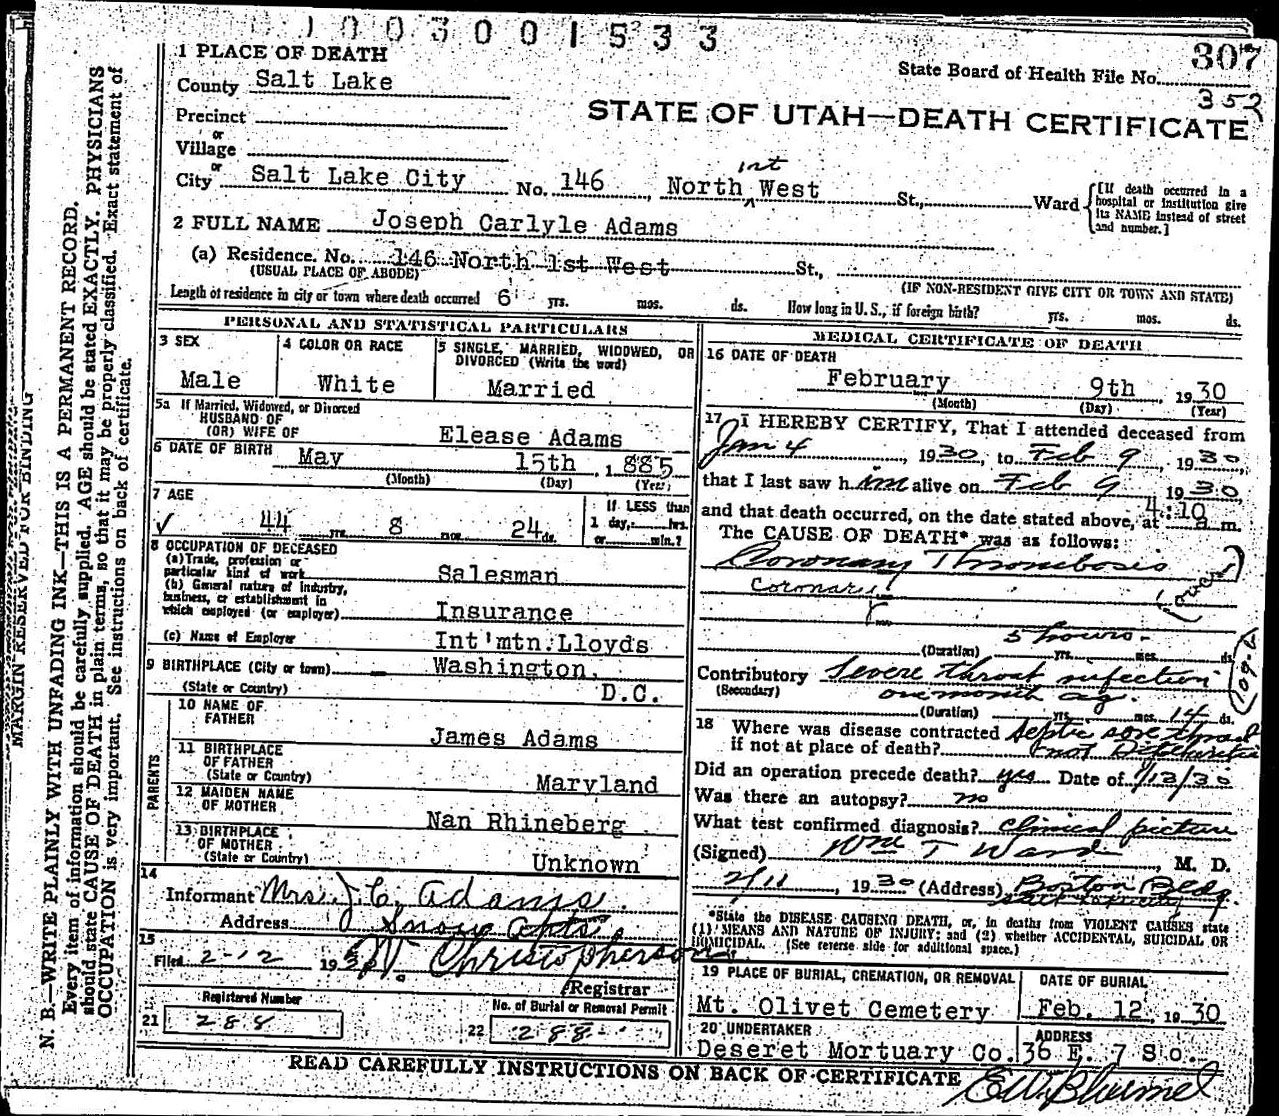 1003001533
307
1 PLACE OF DEATH
State Board of Health File No.
352
County Salt Lake
STATE OF UTAH—DEATH CERTIFICATE
Precinct
or
Village
or
City Salt Lake City No. 146 North 1st West St., Ward
[If death occurred in a hospital or institution give its NAME instead of street and number.]
2 FULL NAME Joseph Carlyle Adams
(a) Residence. No. 146 North 1st West St.,
(USUAL PLACE OF ABODE) (IF NON-RESIDENT GIVE CITY OR TOWN AND STATE)
Length of residence in city or town where death occurred 6 yrs. mos. ds. How long in U. S., if foreign birth? yrs. mos. ds.
PERSONAL AND STATISTICAL PARTICULARS
3 SEX 4 COLOR OR RACE 5 SINGLE, MARRIED, WIDOWED, OR DIVORCED (Write the word)
Male White Married
5a If Married, Widowed, or Divorced
HUSBAND OF
(OR) WIFE OF Elease Adams
6 DATE OF BIRTH May 15th, 1885
(Month) (Day) (Year)
7 AGE If LESS than
44 yrs. 8 mos. 24 ds. 1 day, hrs.
or min.?
8 OCCUPATION OF DECEASED
(a) Trade, profession or
particular kind of work Salesman
(b) General nature of industry,
business, or establishment in
which employed (or employer) Insurance
(c) Name of Employer Int'mtn.Lloyds
9 BIRTHPLACE (City or town) Washington,
(State or Country) D.C.
PARENTS
10 NAME OF
FATHER James Adams
11 BIRTHPLACE
OF FATHER
(State or Country) Maryland
12 MAIDEN NAME
OF MOTHER Nan Rhineberg
13 BIRTHPLACE
OF MOTHER
(State or Country) Unknown
14
Informant Mrs. J. C. Adams
Address Apts.
15
Filed 2-12 1930 Christopherson
Registrar
Registered Number No. of Burial or Removal Permit
21 288 22 288
MEDICAL CERTIFICATE OF DEATH
16 DATE OF DEATH
February 9th 1930
(Month) (Day) (Year)
17 I HEREBY CERTIFY, That I attended deceased from
Jan 4, 1930, to Feb 9, 1930,
that I last saw him alive on Feb 9 1930,
and that death occurred, on the date stated above, at 4:10 a m.
The CAUSE OF DEATH* was as follows:
Coronary Thrombosis
Coronary
(over)
5 hours
(Duration) yrs. mos. ds.
Contributory Severe throat infection
(Secondary) one month ago.
(Duration) yrs. mos. 14 ds.
18 Where was disease contracted Septic sore throat
if not at place of death? not
Did an operation precede death? yes Date of 1/13/30
Was there an autopsy? no
What test confirmed diagnosis? Clinical picture
(Signed) Wm T Ward, M. D.
2/11, 1930 (Address) Boston Bldg
Salt Lake City
*State the DISEASE CAUSING DEATH, or, in deaths from VIOLENT CAUSES state
(1) MEANS AND NATURE OF INJURY; and (2) whether ACCIDENTAL, SUICIDAL OR
HOMICIDAL. (See reverse side for additional space.)
19 PLACE OF BURIAL, CREMATION, OR REMOVAL DATE OF BURIAL
Mt. Olivet Cemetery Feb. 12, 1930
20 UNDERTAKER ADDRESS
Deseret Mortuary Co. 36 E. 7 So.
READ CAREFULLY INSTRUCTIONS ON BACK OF CERTIFICATE
MARGIN RESERVED FOR BINDING
N. B.—WRITE PLAINLY WITH UNFADING INK—THIS IS A PERMANENT RECORD.
Every item of information should be carefully supplied. AGE should be stated EXACTLY. PHYSICIANS
should state CAUSE OF DEATH in plain terms, so that it may be properly classified. Exact statement of
OCCUPATION is very important. See instructions on back of certificate.